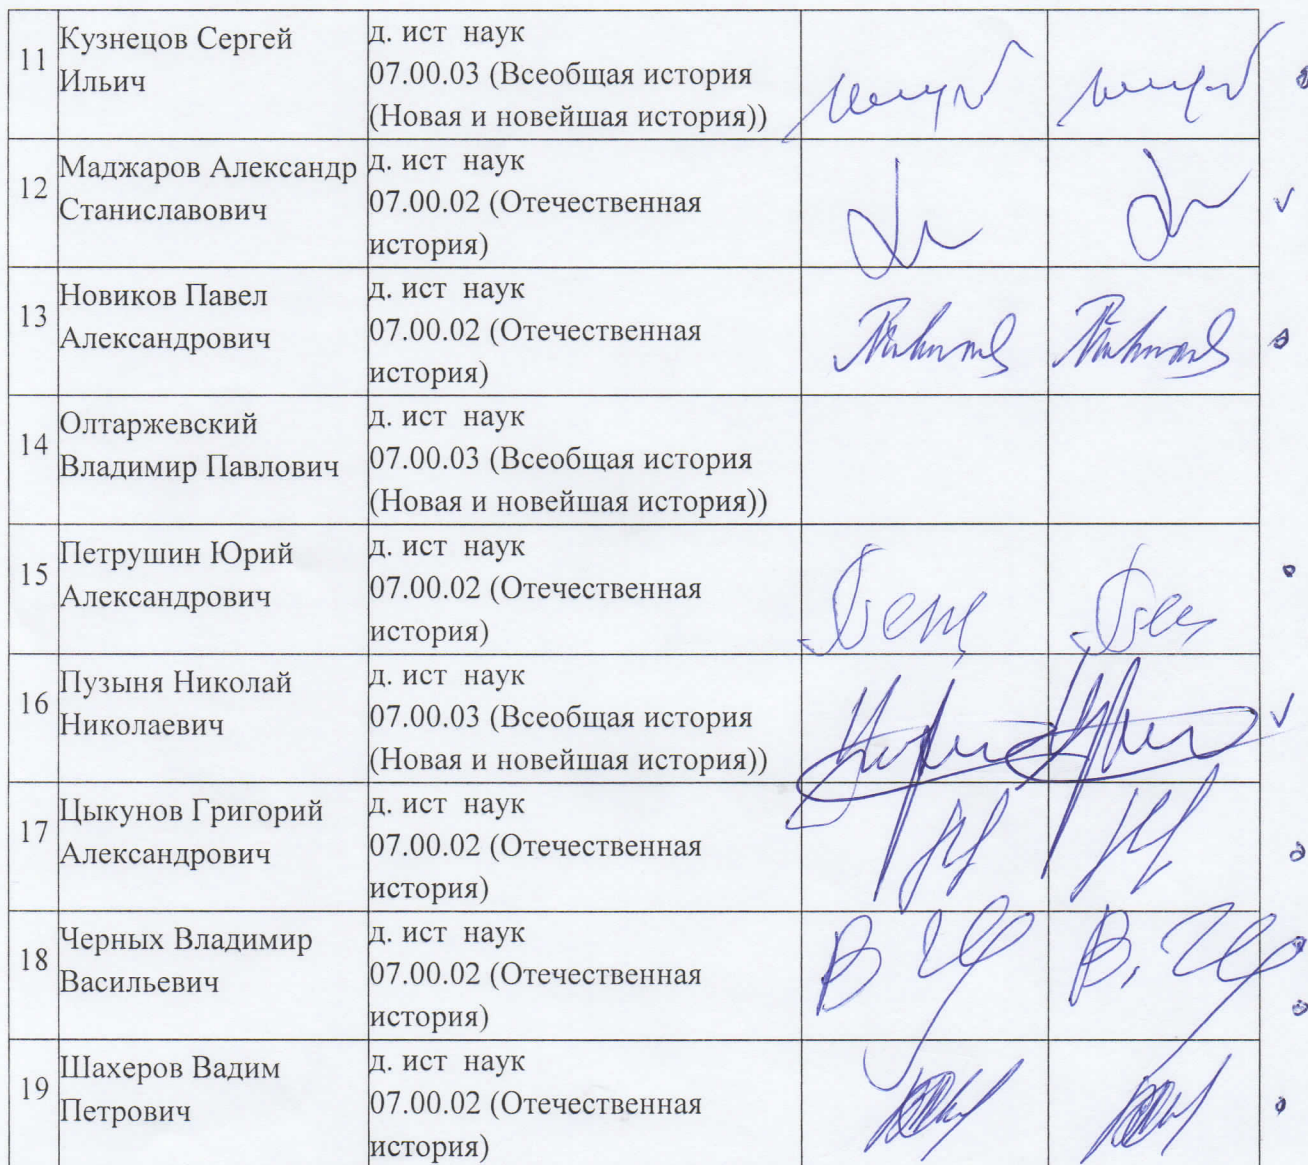 11
Кузнецов Сергей
Ильич
д. ист наук
07.00.03 (Всеобщая история
(Новая и новейшая история))
12
Маджаров Александр
Станиславович
д. ист наук
07.00.02 (Отечественная
история)
13
Новиков Павел
Александрович
д. ист наук
07.00.02 (Отечественная
история)
14
Олтаржевский
Владимир Павлович
д. ист наук
07.00.03 (Всеобщая история
(Новая и новейшая история))
15
Петрушин Юрий
Александрович
д. ист наук
07.00.02 (Отечественная
история)
16
Пузыня Николай
Николаевич
д. ист наук
07.00.03 (Всеобщая история
(Новая и новейшая история))
17
Цыкунов Григорий
Александрович
д. ист наук
07.00.02 (Отечественная
история)
18
Черных Владимир
Васильевич
д. ист наук
07.00.02 (Отечественная
история)
19
Шахеров Вадим
Петрович
д. ист наук
07.00.02 (Отечественная
история)